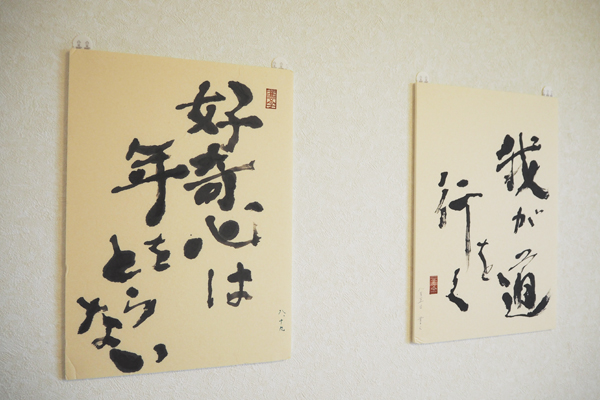 好奇心は
年をとらない
八十九
我が道を
行く